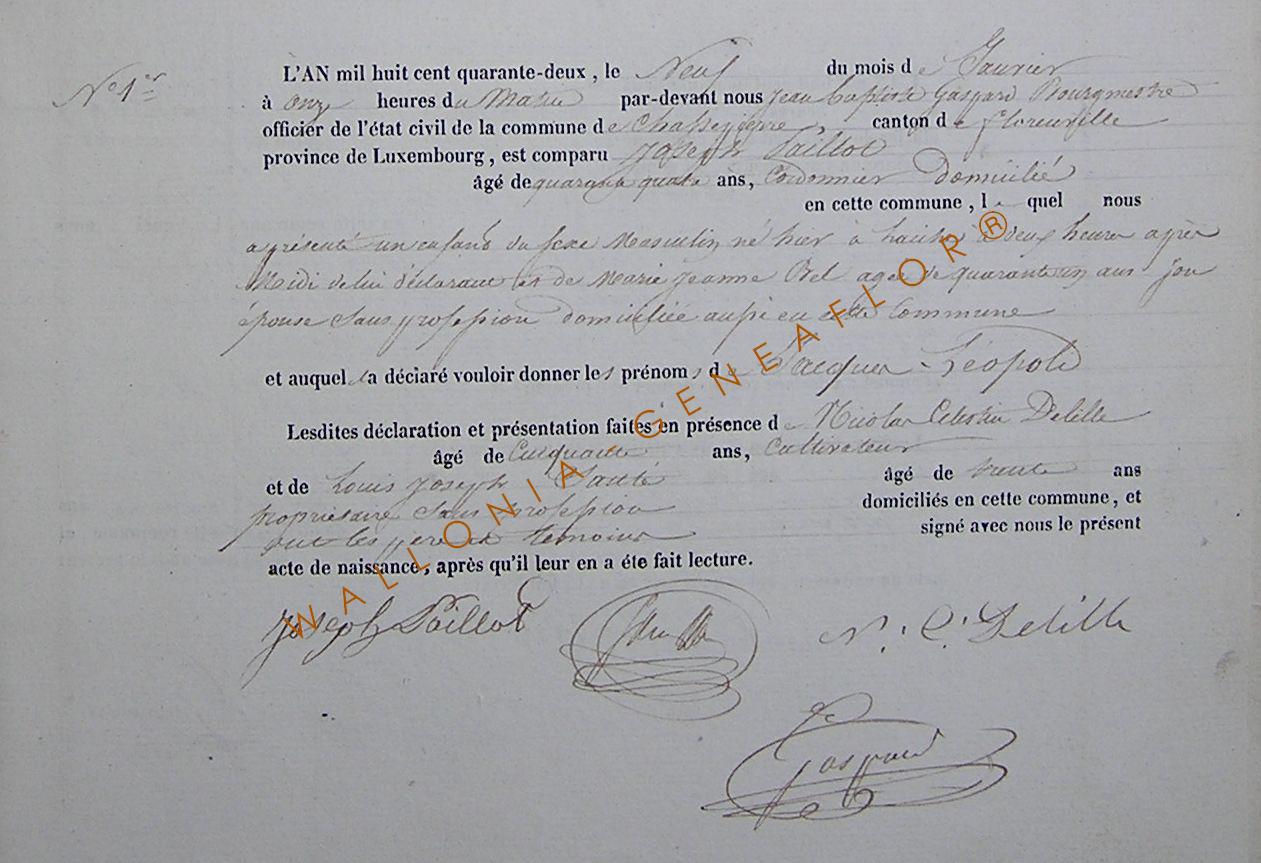 N° 1er
L'AN mil huit cent quarante-deux, le Neuf du mois de Janvier
à onze heures du Matin par-devant nous Jean baptiste Gaspard Bourgmestre
officier de l'état civil de la commune de Chassepierre, canton de florenville
province de Luxembourg, est comparu Joseph Saillot
âgé de quarante quatre ans, Cordonnier domicilié
en cette commune, le quel nous
a présenté un enfant du sexe Masculin né hier à à deux heures après
Midi de lui déclarant et de Marie Jeanne agée de quarante un ans son
épouse Sans profession domiciliée aussi en cette Commune
et auquel il a déclaré vouloir donner les prénoms de Jacques Léopold
Lesdites déclaration et présentation faites en présence de Nicolas Celestin Delille
âgé de Cinquante ans, Cultivateur
et de Louis Joseph âgé de trente ans
propriétaire Sans profession domiciliés en cette commune, et
ont les pere et temoins signé avec nous le présent
acte de naissance, après qu'il leur en a éte fait lecture.
Joseph Saillot N. C. Delille
Gaspard
WALLONIA - GENEAFLOR ®